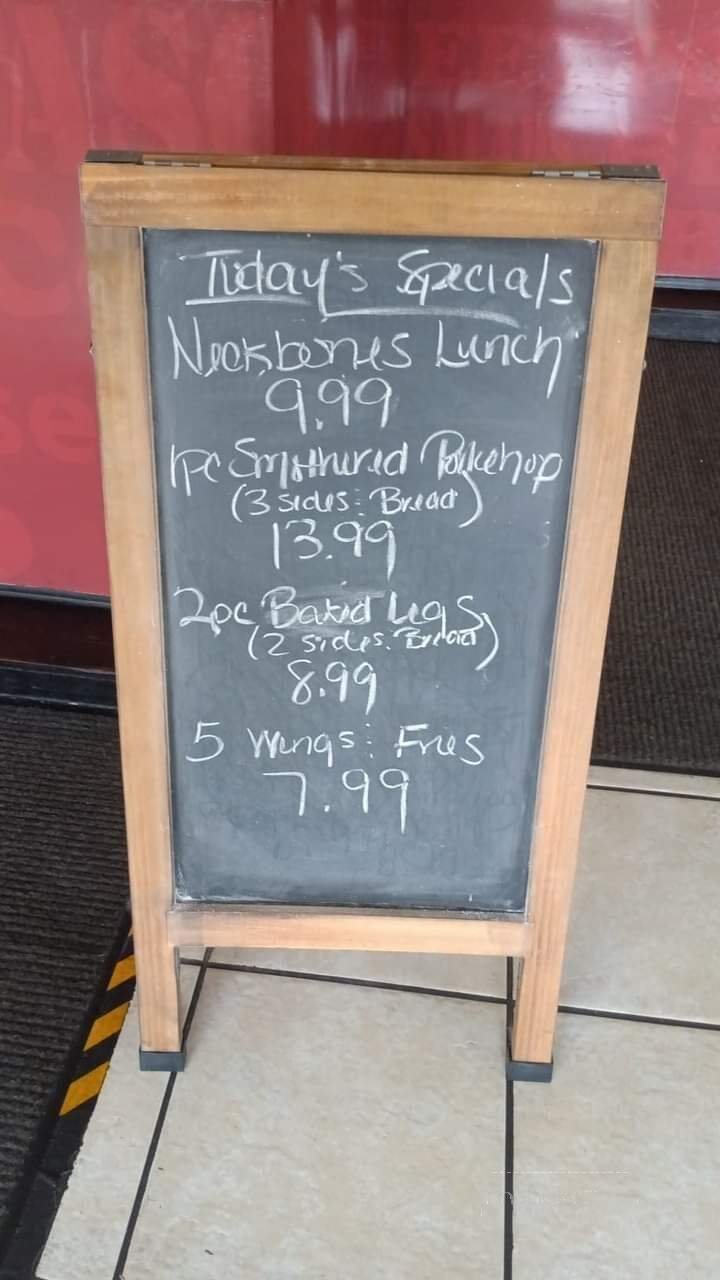 Today's Specials
Neckbones Lunch
9.99
1pc Smothered Porkchop
(3 sides: Bread)
13.99
2pc Baked Legs
(2 sides: Bread)
8.99
5 Wings: Fries
7.99